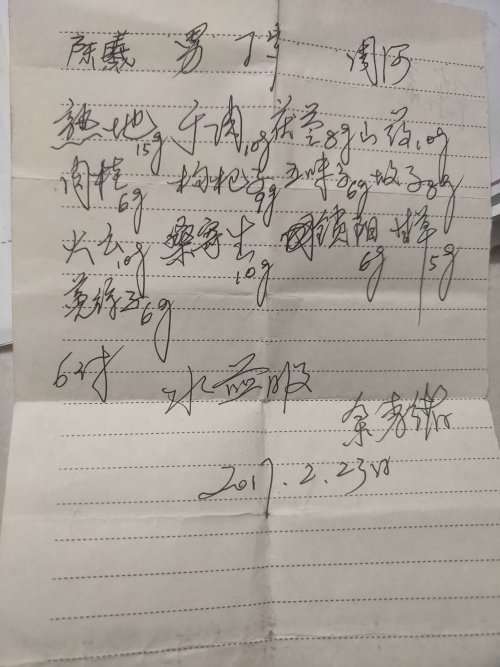 陈羲 男 丁
熟地15g 于肉10g 茯苓8g 山药10g
肉桂6g 枸杞子9g 五味子6g 故子8g
大云10g 桑寄生10g 锁阳6g 甘草5g
菟丝子6g
6付 水煎服
2017.2.23日